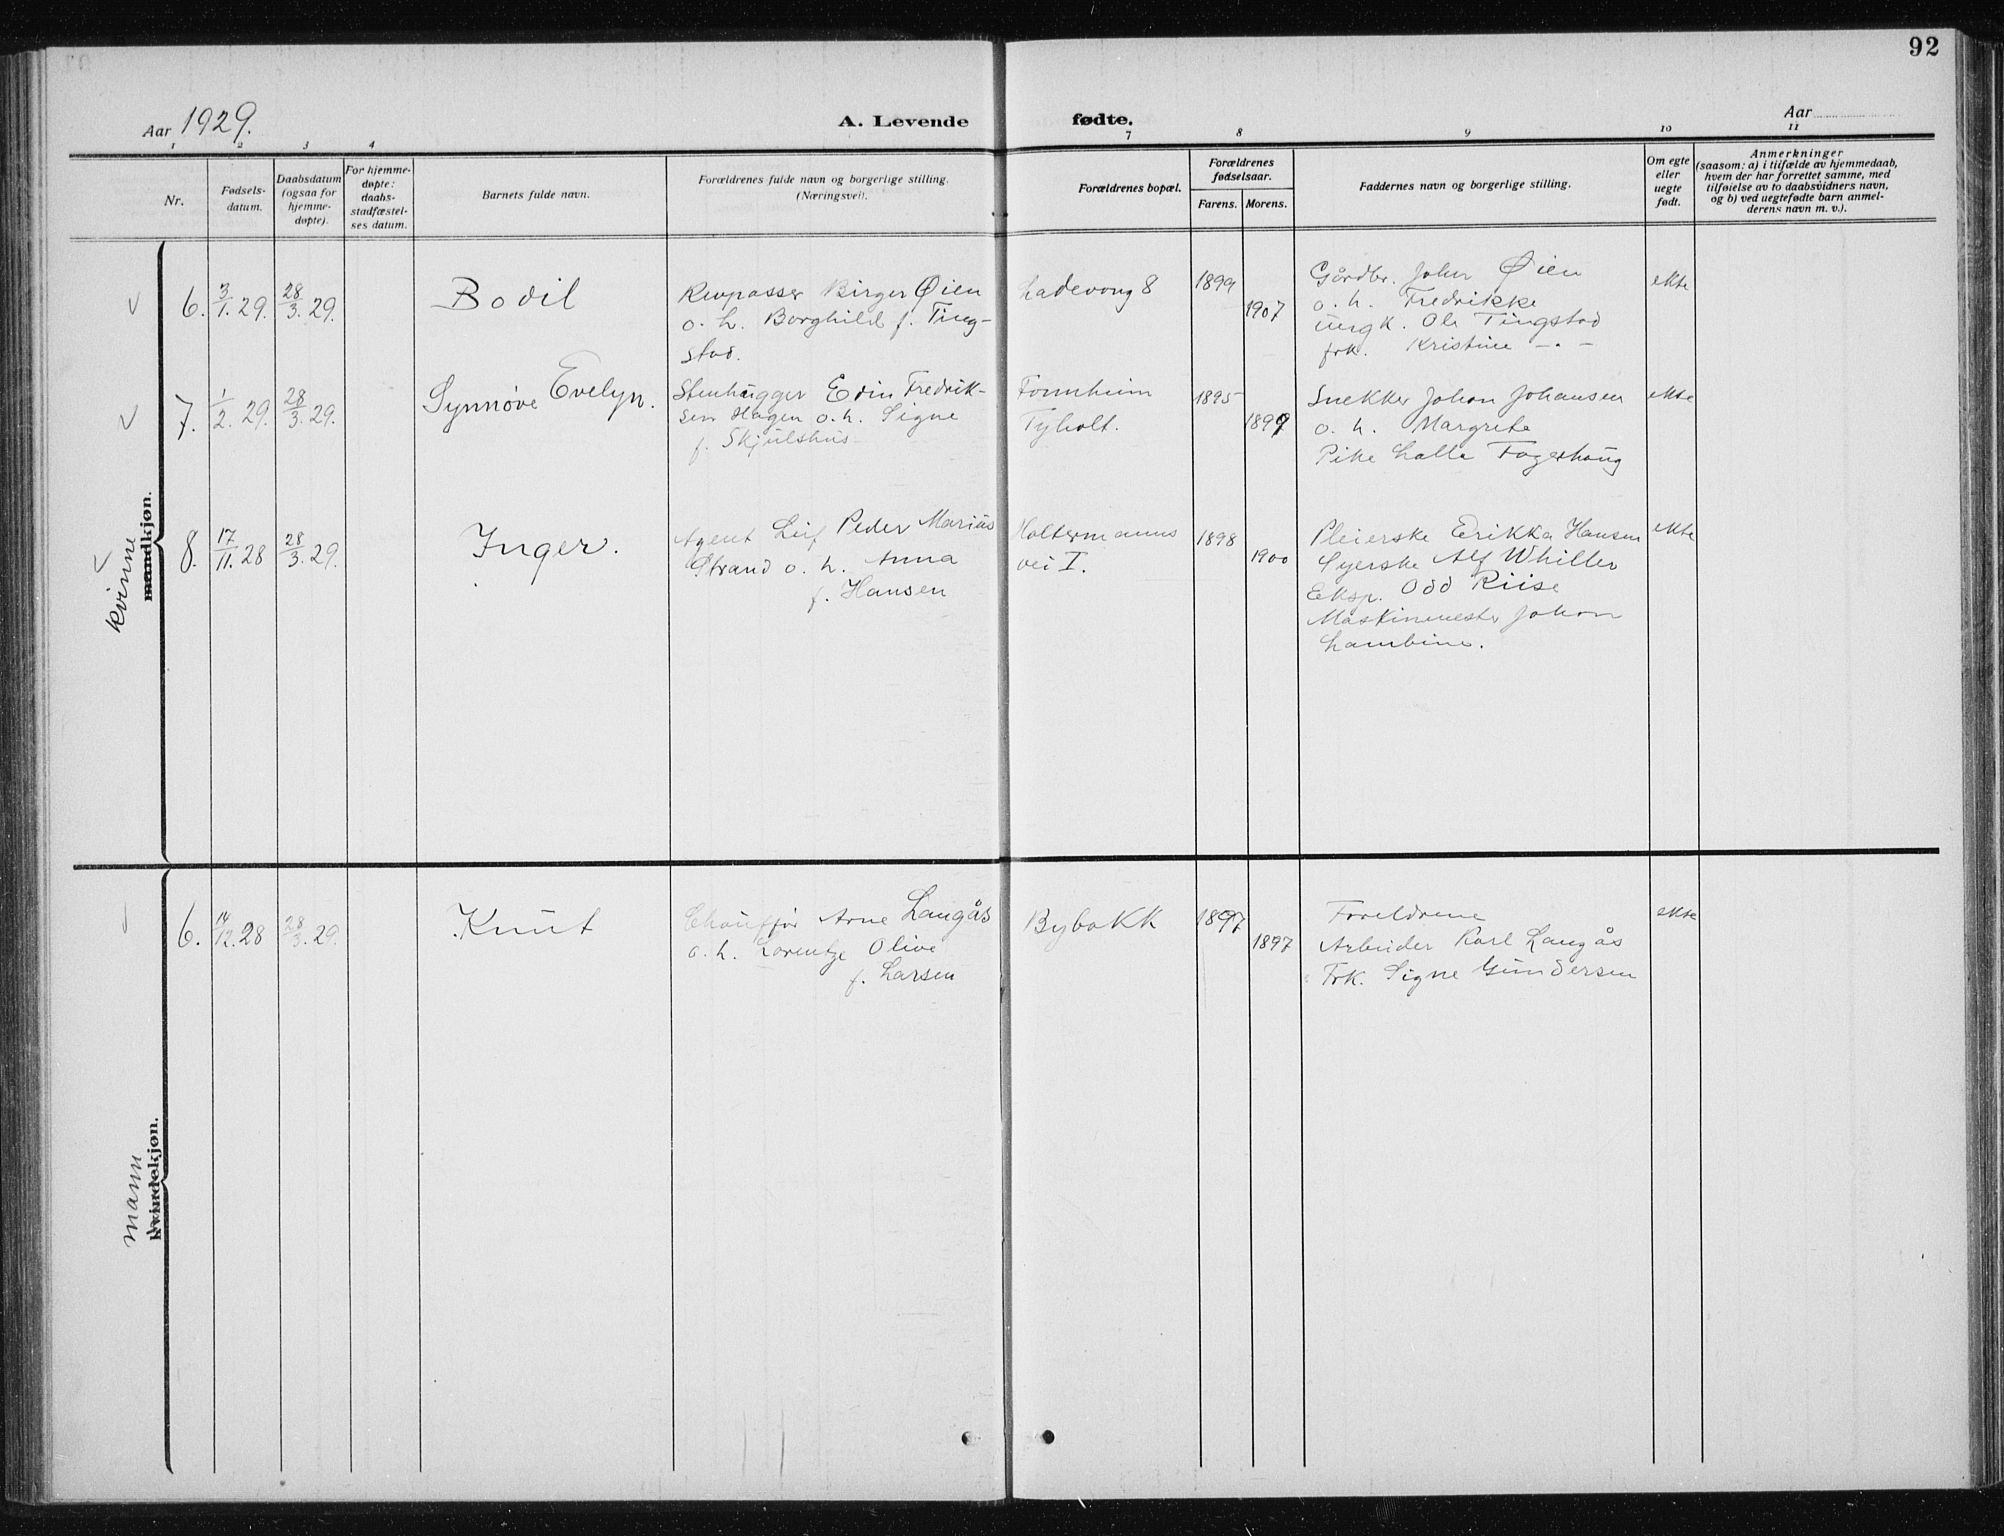 92
Aar 1929.
A. Levende fødte.
Aar
1 2 3 4 7 8 9 10 11
Nr.
Fødsels-
datum.
Daabsdatum
(ogsaa for
hjemme-
døpte).
For hjemme-
døpte:
daabs-
stadfæstel-
ses datum.
Barnets fulde navn.
Forældrenes fulde navn og borgerlige stilling.
(Næringsvei).
Forældrenes bopæl.
Forældrenes
fødselsaar.
Farens. Morens.
Faddernes navn og borgerlige stilling.
Om egte
eller
uegte
født.
Anmerkninger
(saasom: a) i tilfælde av hjemmedaab,
hvem der har forrettet samme, med
tilføielse av to daabsvidners navn,
og b) ved uegtefødte barn anmel-
derens navn m. v.).
kvinne
mandkjøn.
6. 3/1.29. 28/3.29.
Bodil
Revpasser Birger Øien
o. h. Borghild f. Ting-
stad.
Ladevong 8
1899
1907
Gårdbr. John Øien
o. h. Fredrikke
Ungk. Ole Tingstad
frk. Kristine -"-
ekte
7. 1/2.29. 28/3.29.
Synnøve Evelyn.
Stenhugger Edin Fredrik-
sen Hagen o. h. Signe
f. Skjulshus
Fonnheim
Tyholt.
1895
1899
Snekker Johan Johansen
o. h. Margrete
Pike Lalla Fagerhaug
ekte
8. 17/11.28 28/3.29.
Inger.
Agent Leif Peder Marius
Strand o. h. Anna
f. Hansen
Holtermanns
vei I.
1898
1900
Pleierske Erikka Hansen
Syerske Alf Whiller
Eksp. Odd Riise
Maskinmester Johan
Lambine.
ekte
mann
kvindekjøn.
6. 14/12.28 28/3.29.
Knut
Chauffør Arne Langås
o. h. Lorentze Olive
f. Larsen
Bybakk
1897
1897
Foreldrene
Arbeider Karl Langås
Frk. Signe Gundersen
ekte